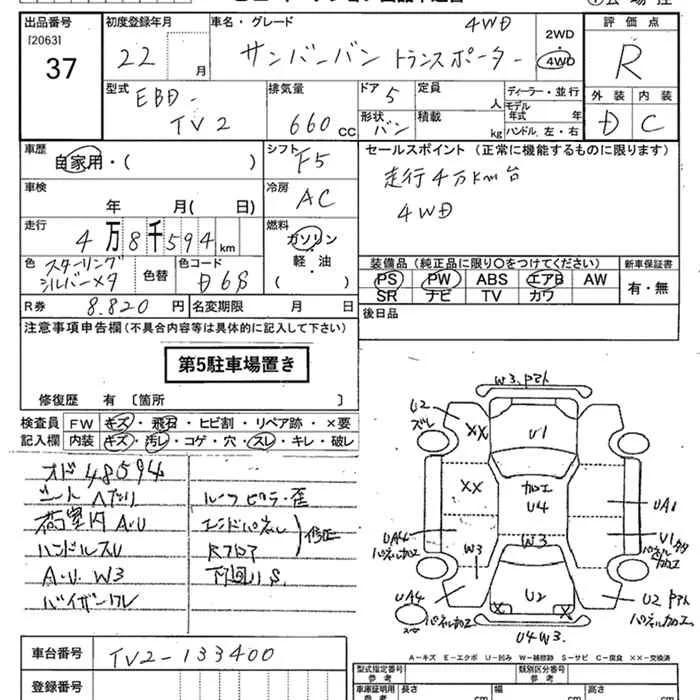 出品番号 初度登録年月 車名・グレード 4WD 2WD 評価点
[2063] 37 22 月 サンバーバン トランスポーター 4WD R
型式 EBD- TV2 排気量 660 CC ドア 5 定員 人 ディーラー・並行 外装 内装
形状 バン 積載 kg モデル年式 年 ハンドル 左・右 D C
車歴 自家用・( ) シフト F5 セールスポイント (正常に機能するものに限ります)
走行4万km台
4WD
車検 年 月( 日) 冷房 AC
走行 4万8千594km 燃料 ガソリン・軽・油 ( )
色 スターリングシルバーメタ 色替 色コード D6S
装備品 (純正品に限り○をつけてください) 新車保証書
PS PW ABS エアB AW 有・無
SR ナビ TV カワ
R券 8.820 円 名変期限 月 日 後日品
注意事項申告欄 (不具合内容等は具体的に記入して下さい)
第5駐車場置き
修復歴 有 〔箇所 〕
検査員 FW キズ・飛石・ヒビ割・リペア跡・×要
記入欄 内装 キズ・汚レ・コゲ・穴・スレ・キレ・破レ
オド48594
シートヘタリ ルーフピラー歪
荷室内A.U エンドパネル
ハンドルスレ Rフロア 修正
A.U. W3 下回りS.
バイザーワレ
W3.アト
U2 ズレ
XX
U1
XX
加工 U4
UA1
UA4 パネル加工
W3
W3
U1
パネル加工
UA4 パネル加工
X U2 X
U2 アト パネル加工
U4 W3.
A-キズ E-エクボ U-凹み W-補修跡 S-サビ C-腐食 XX-交換済
車台番号 TV2-133400
登録番号
型式指定番号 参考 類別区分番号
車庫証明用 参考 長さ cm 幅 cm 高さ cm